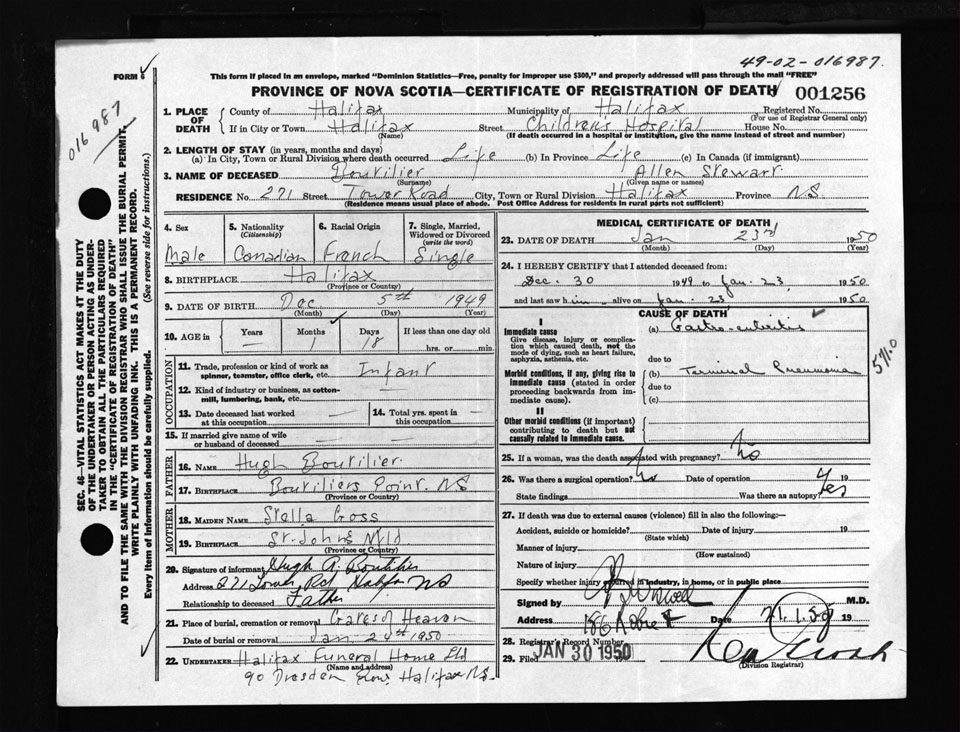 49-02-016987
FORM 6
016987
This form if placed in an envelope, marked "Dominion Statistics—Free, penalty for improper use $300," and properly addressed will pass through the mail "FREE"
PROVINCE OF NOVA SCOTIA—CERTIFICATE OF REGISTRATION OF DEATH 001256
1. PLACE OF DEATH { County of Halifax Municipality of Halifax Registered No.
(For use of Registrar General only)
If in City or Town Halifax Street Childrens Hospital House No.
(Name) (If death occurred in a hospital or institution, give the name instead of street and number)
2. LENGTH OF STAY (in years, months and days)
(a) In City, Town or Rural Division where death occurred Life (b) In Province Life (c) In Canada (if immigrant)
3. NAME OF DECEASED Boutilier Allen Stewart
(Surname) (Given name or names)
RESIDENCE No 271 Street Tower Road City, Town or Rural Division Halifax Province NS
(Residence means usual place of abode. Post Office Address for residents in rural parts not sufficient)
4. Sex Male
5. Nationality (Citizenship) Canadian
6. Racial Origin French
7. Single, Married, Widowed or Divorced (write the word) Single
8. BIRTHPLACE Halifax
(Province or Country)
9. DATE OF BIRTH Dec 5th 1949
(Month) (Day) (Year)
10. AGE in Years — Months 1 Days 18 If less than one day old
hrs. or min.
OCCUPATION
11. Trade, profession or kind of work as spinner, teamster, office clerk, etc. Infant
12. Kind of industry or business, as cotton-mill, lumbering, bank, etc.
13. Date deceased last worked at this occupation —
14. Total yrs. spent in this occupation —
15. If married give name of wife or husband of deceased — —
FATHER
16. NAME Hugh Boutilier
17. BIRTHPLACE Boutiliers Point. NS
(Province or Country)
MOTHER
18. MAIDEN NAME Stella Goss
19. BIRTHPLACE St. Johns Nfld
(Province or Country)
20. Signature of informant Hugh A. Boutilier
Address 271 Tower Rd Halifax NS
Relationship to deceased Father
21. Place of burial, cremation or removal Gates of Heaven
Date of burial or removal Jan. 24th 1950
22. UNDERTAKER Halifax Funeral Home Ltd
(Name and address)
90 Dresden Row, Halifax NS.
MEDICAL CERTIFICATE OF DEATH
23. DATE OF DEATH Jan 23rd 1950
(Month) (Day) (Year)
24. I HEREBY CERTIFY that I attended deceased from:
Dec. 30 1949 to Jan. 23, 1950
and last saw him alive on Jan. 23 1950
CAUSE OF DEATH
I
Immediate cause
Give disease, injury or complication which caused death, not the mode of dying, such as heart failure, asphyxia, asthenia, etc.
(a) Gastro-enteritis
due to
Morbid conditions, if any, giving rise to immediate cause (stated in order proceeding backwards from immediate cause).
(b) Terminal Pneumonia
due to
(c)
571.0
II
Other morbid conditions (if important) contributing to death but not causally related to immediate cause.
25. If a woman, was the death associated with pregnancy? No
26. Was there a surgical operation? No Date of operation 19
State findings Was there an autopsy? Yes
27. If death was due to external causes (violence) fill in also the following:—
Accident, suicide or homicide? Date of injury 19
(State which)
Manner of injury
(How sustained)
Nature of injury
Specify whether injury occurred in industry, in home, or in public place
Signed by M.D.
Address 186 Date 19
28. Registrar's Record Number
29. Filed JAN 30 1950
(Division Registrar)
SEC. 46—VITAL STATISTICS ACT MAKES IT THE DUTY
OF THE UNDERTAKER OR PERSON ACTING AS UNDER-
TAKER TO OBTAIN ALL THE PARTICULARS REQUIRED
IN THE "CERTIFICATE OF REGISTRATION OF DEATH"
AND TO FILE THE SAME WITH THE DIVISION REGISTRAR WHO SHALL ISSUE THE BURIAL PERMIT.
WRITE PLAINLY WITH UNFADING INK. THIS IS A PERMANENT RECORD.
Every item of information should be carefully supplied. (See reverse side for instructions.)